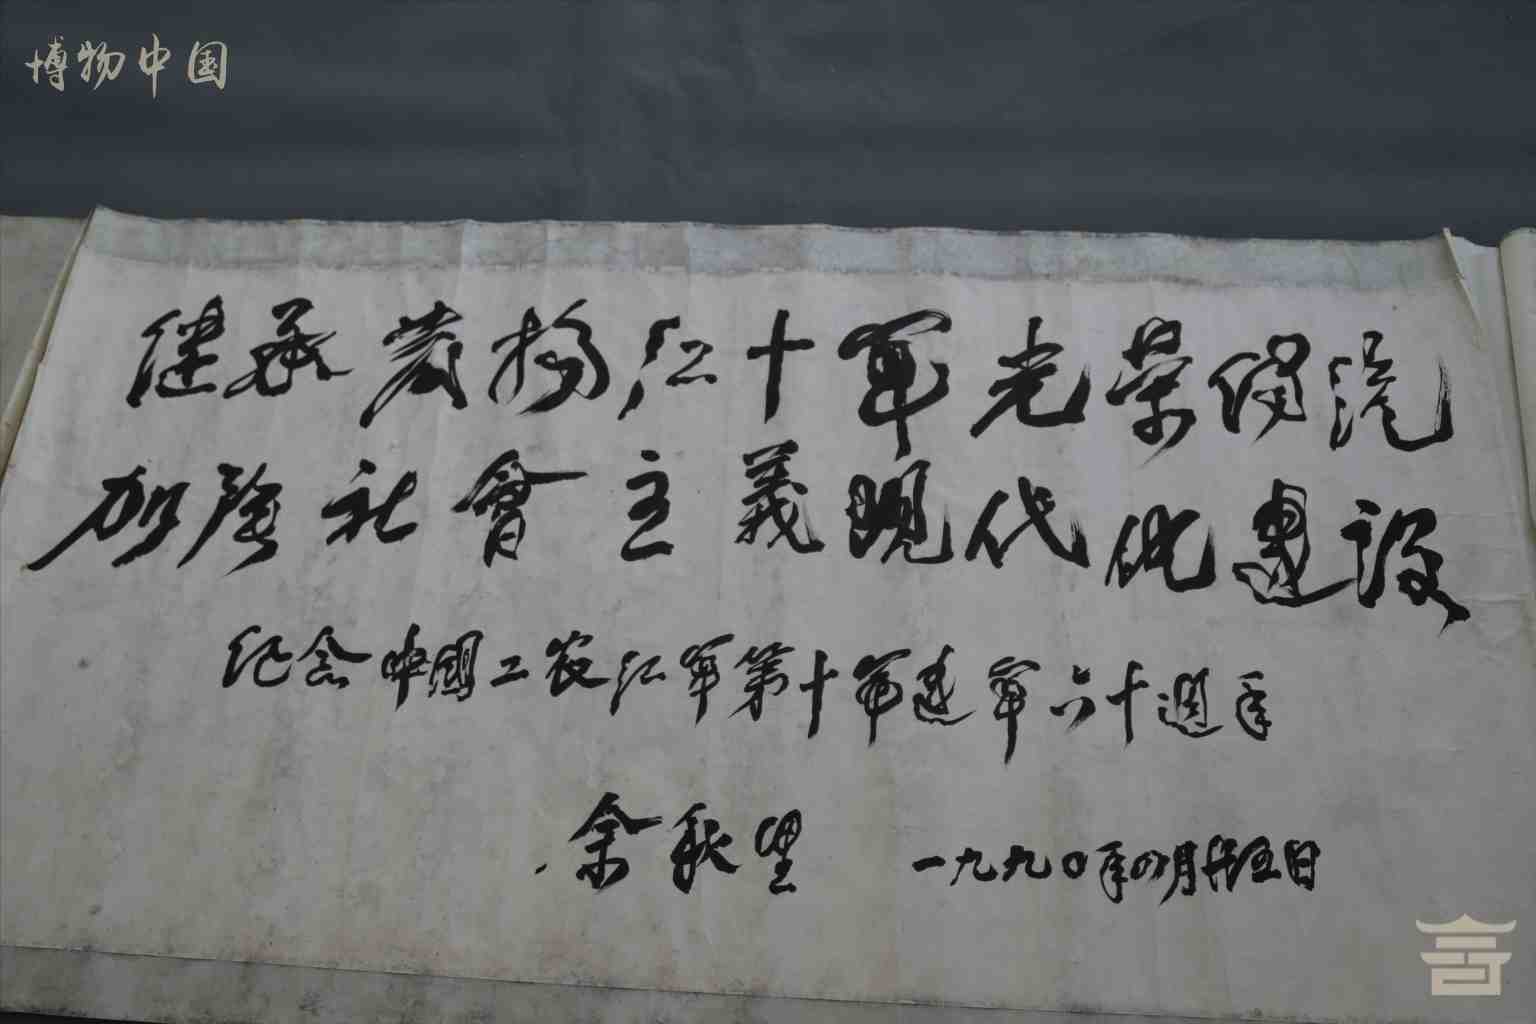 博物中国
继承发扬红十军光荣传统
加强社會主義现代化建设
纪念中國工农红军第十军建军六十週年
余秋里 一九九〇年四月廿五日